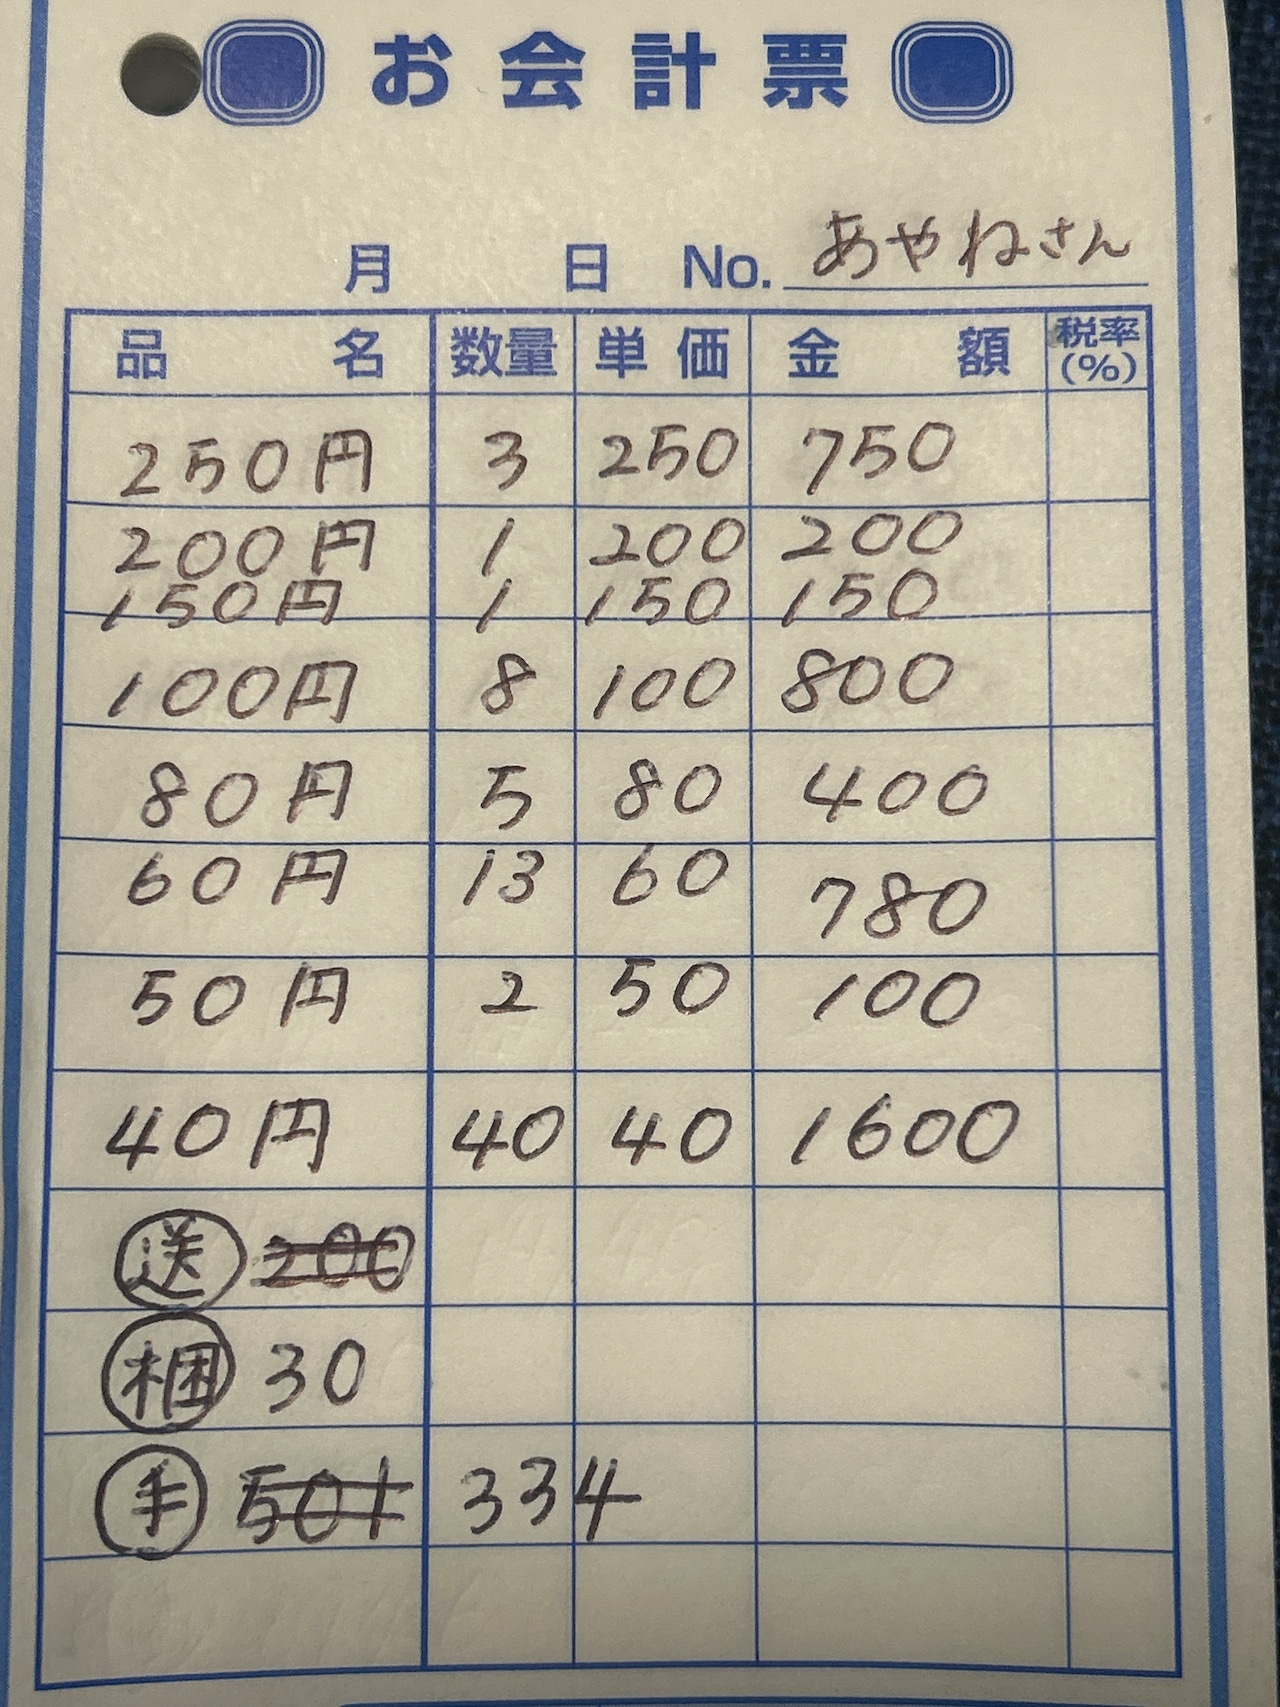 お会計票
月 日 No. あやねさん
品名 数量 単価 金額 税率(%)
250円 3 250 750
200円 1 200 200
150円 1 150 150
100円 8 100 800
80円 5 80 400
60円 13 60 780
50円 2 50 100
40円 40 40 1600
送 200
梱 30
手 501 334